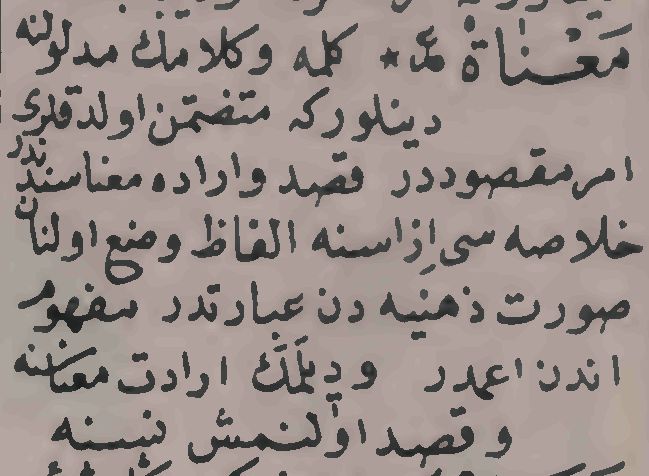 مَعْنَاةٌ عم * كلمه وكلامك مدلولنه
دينلوركه متضمن اولدقلرى
امر مقصوددر قصد واراده معناسندندر
خلاصه سى ازاسنه الفاظ وضع اولنان
صورت ذهنيه دن عبارتدر مفهوم
اندن اعمدر وديلمك ارادت معناسنه
وقصد اولنمش نسنه